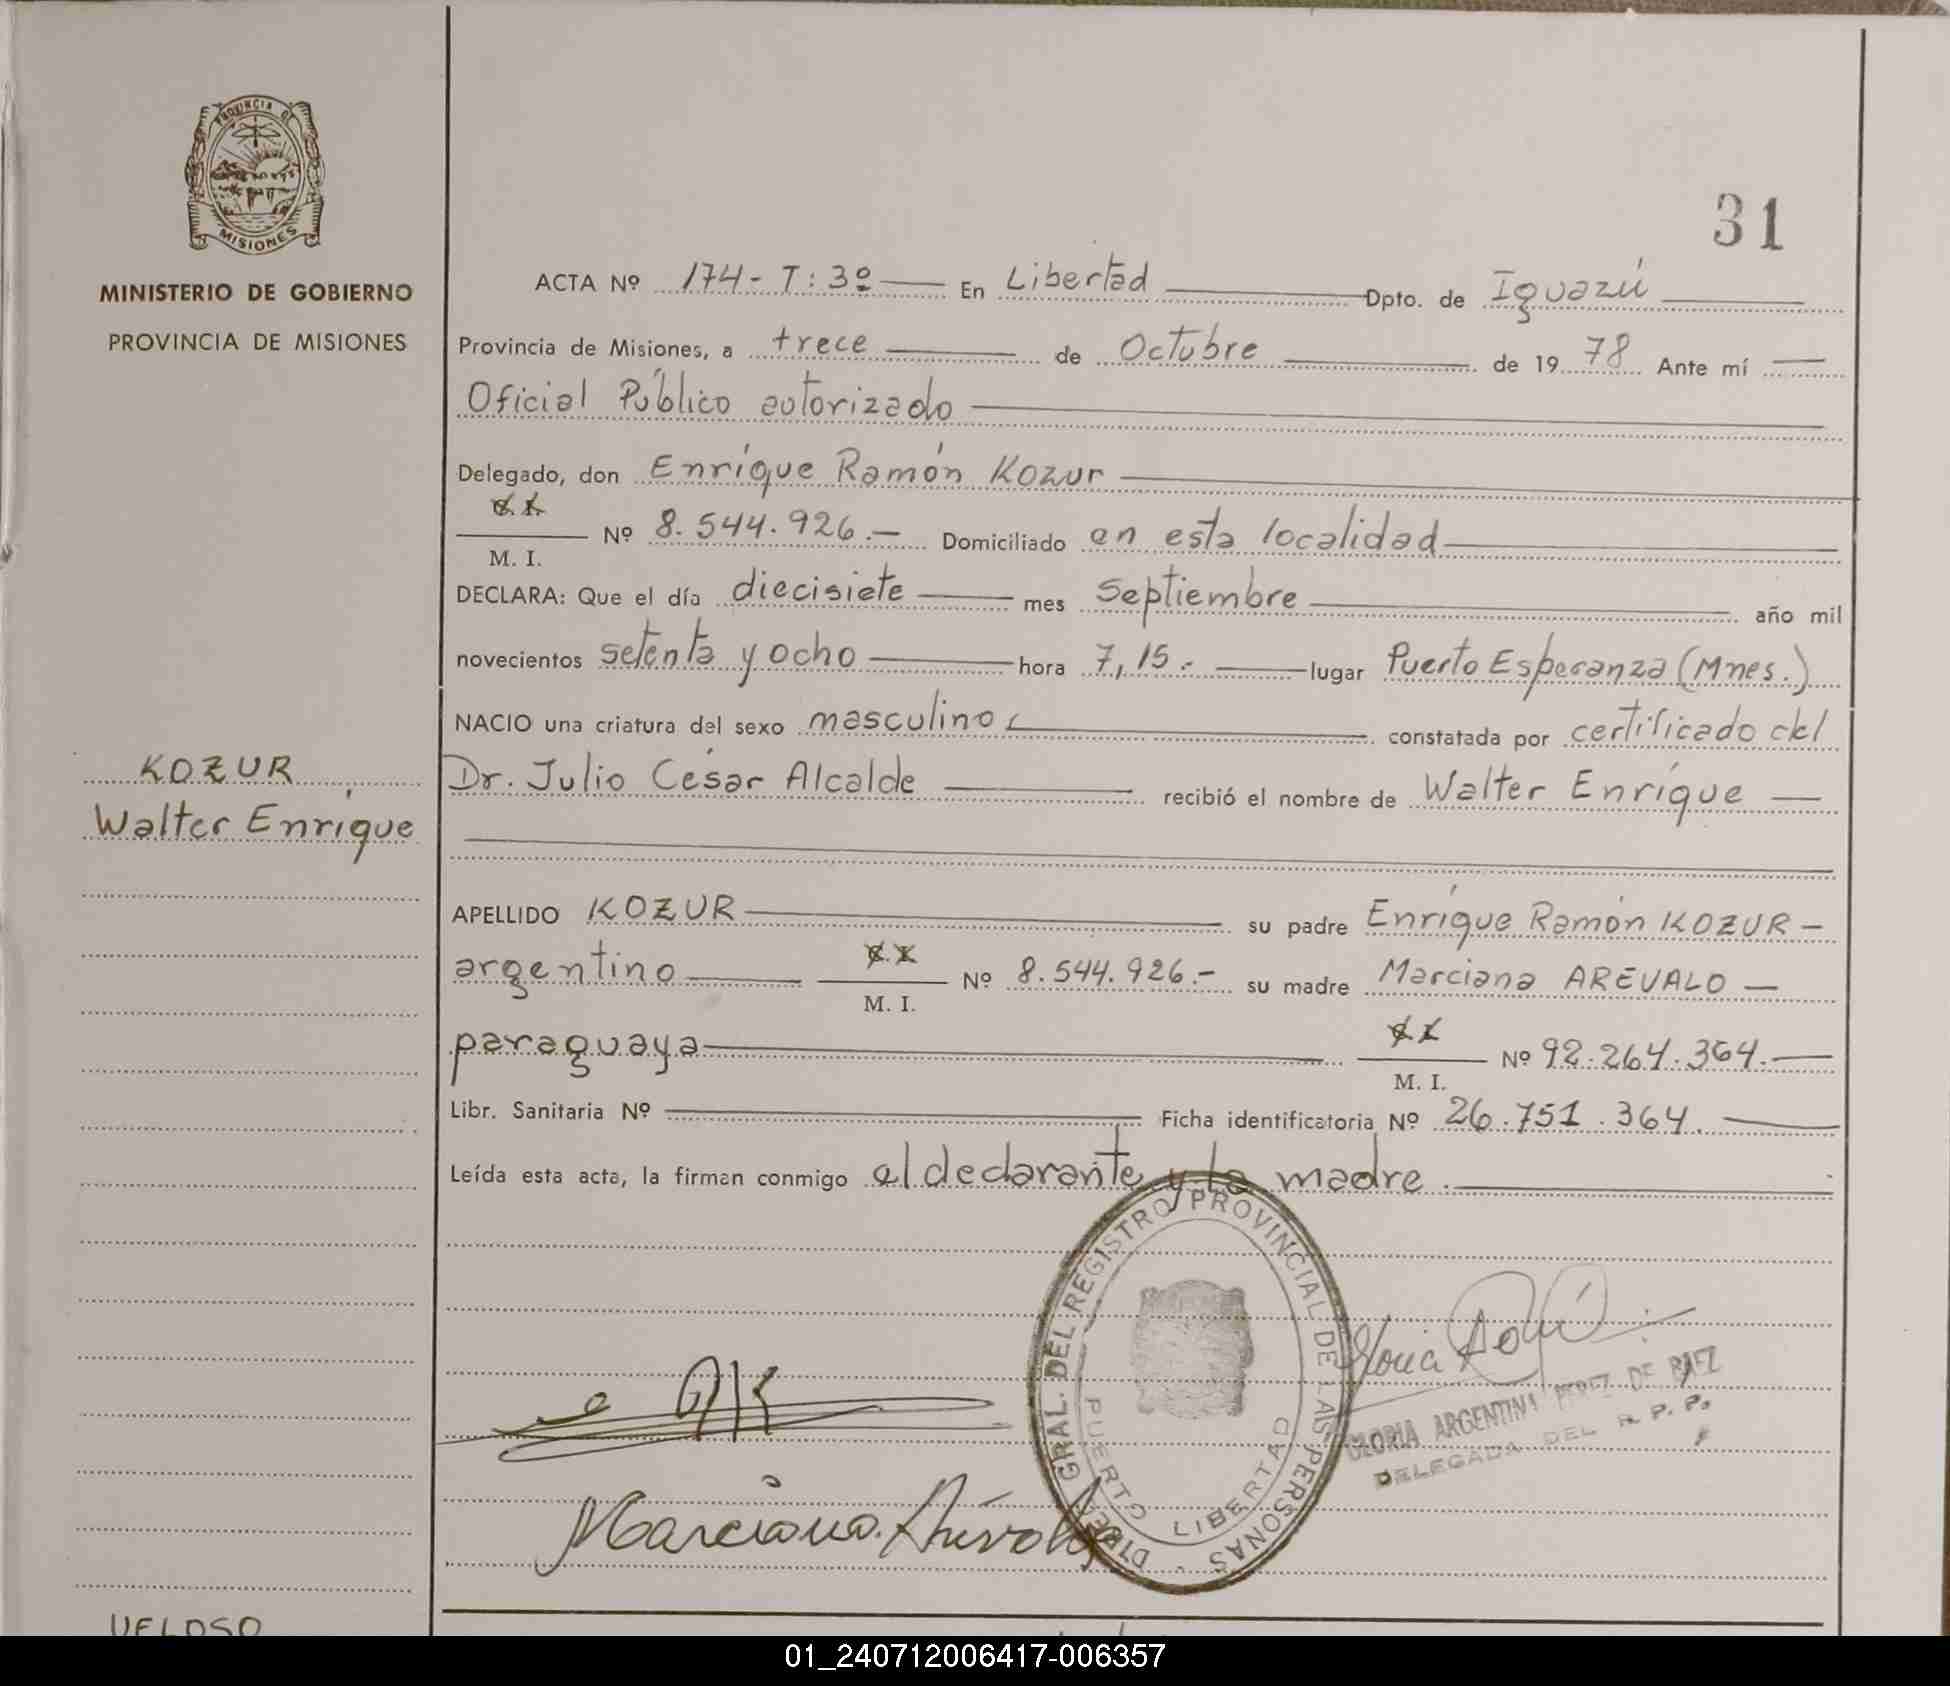 PROVINCIA DE
MISIONES
MINISTERIO DE GOBIERNO
PROVINCIA DE MISIONES
31
ACTA Nº 174-T:3º En Libertad Dpto. de Iguazú
Provincia de Misiones, a trece de Octubre de 1978 Ante mí
Oficial Público autorizado
Delegado, don Enrique Ramón Kozur
M. I. Nº 8.544.926.- Domiciliado en esta localidad
DECLARA: Que el día diecisiete mes septiembre año mil
novecientos setenta y ocho hora 7,15.- lugar Puerto Esperanza (Mnes.)
NACIO una criatura del sexo masculino constatada por certificado del
Dr. Julio César Alcalde recibió el nombre de Walter Enrique
KOZUR
Walter Enrique
APELLIDO KOZUR su padre Enrique Ramón KOZUR
argentino M. I. Nº 8.544.926.- su madre Marciana AREVALO
paraguaya M. I. Nº 92.264.364.
Libr. Sanitaria Nº Ficha identificatoria Nº 26.751.364.
Leída esta acta, la firman conmigo el declarante y la madre.
DIREC. GRAL. DEL REGISTRO PROVINCIAL DE LAS PERSONAS
PUERTO LIBERTAD
GLORIA ARGENTINA PEREZ DE BAEZ
DELEGADA DEL R. P. P.
Marciana Arévalo
VELOSO
01_240712006417-006357